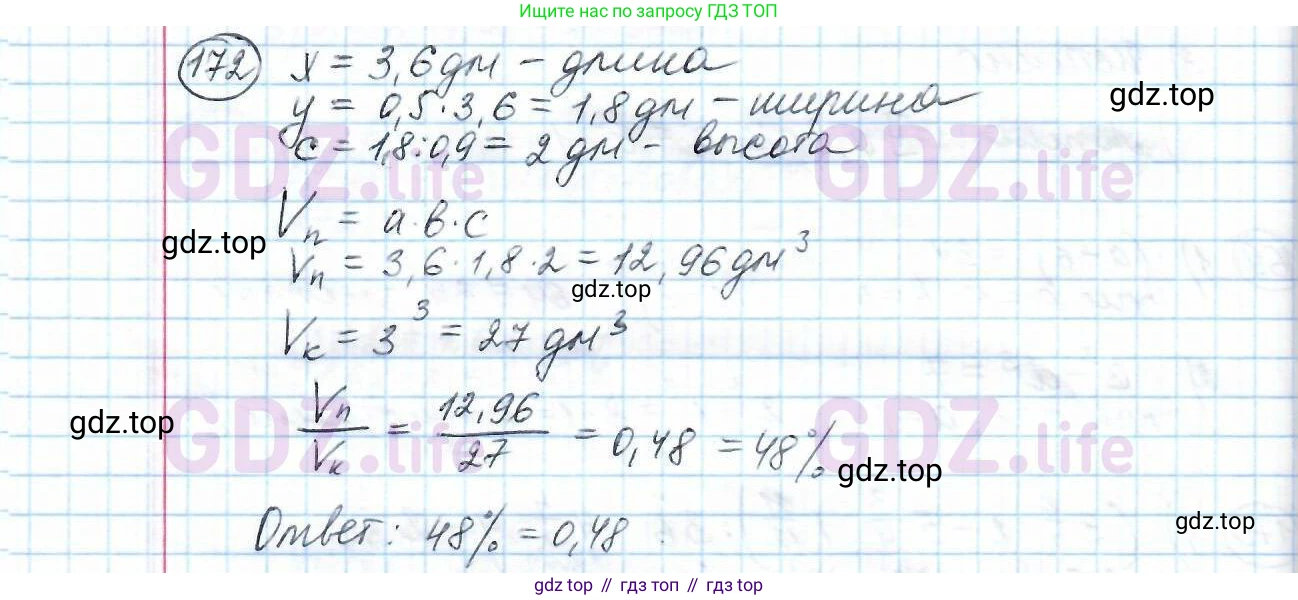 Ищите нас по запросу ГДЗ ТОП
172 x = 3,6 дм - длина
y = 0,5 · 3,6 = 1,8 дм - ширина
gdz.top
c = 1,8 : 0,9 = 2 дм - высота
GDZ.life GDZ.life
Vп = a · b · c
gdz.top
Vп = 3,6 · 1,8 · 2 = 12,96 дм³
gdz.top
Vк = 3³ = 27 дм³
Vп/Vк = 12,96/27 = 0,48 = 48%
gdz.top
GDZ.life GDZ.life
gdz.top
Ответ: 48% = 0,48
gdz.top
gdz top // гдз топ // гдз top